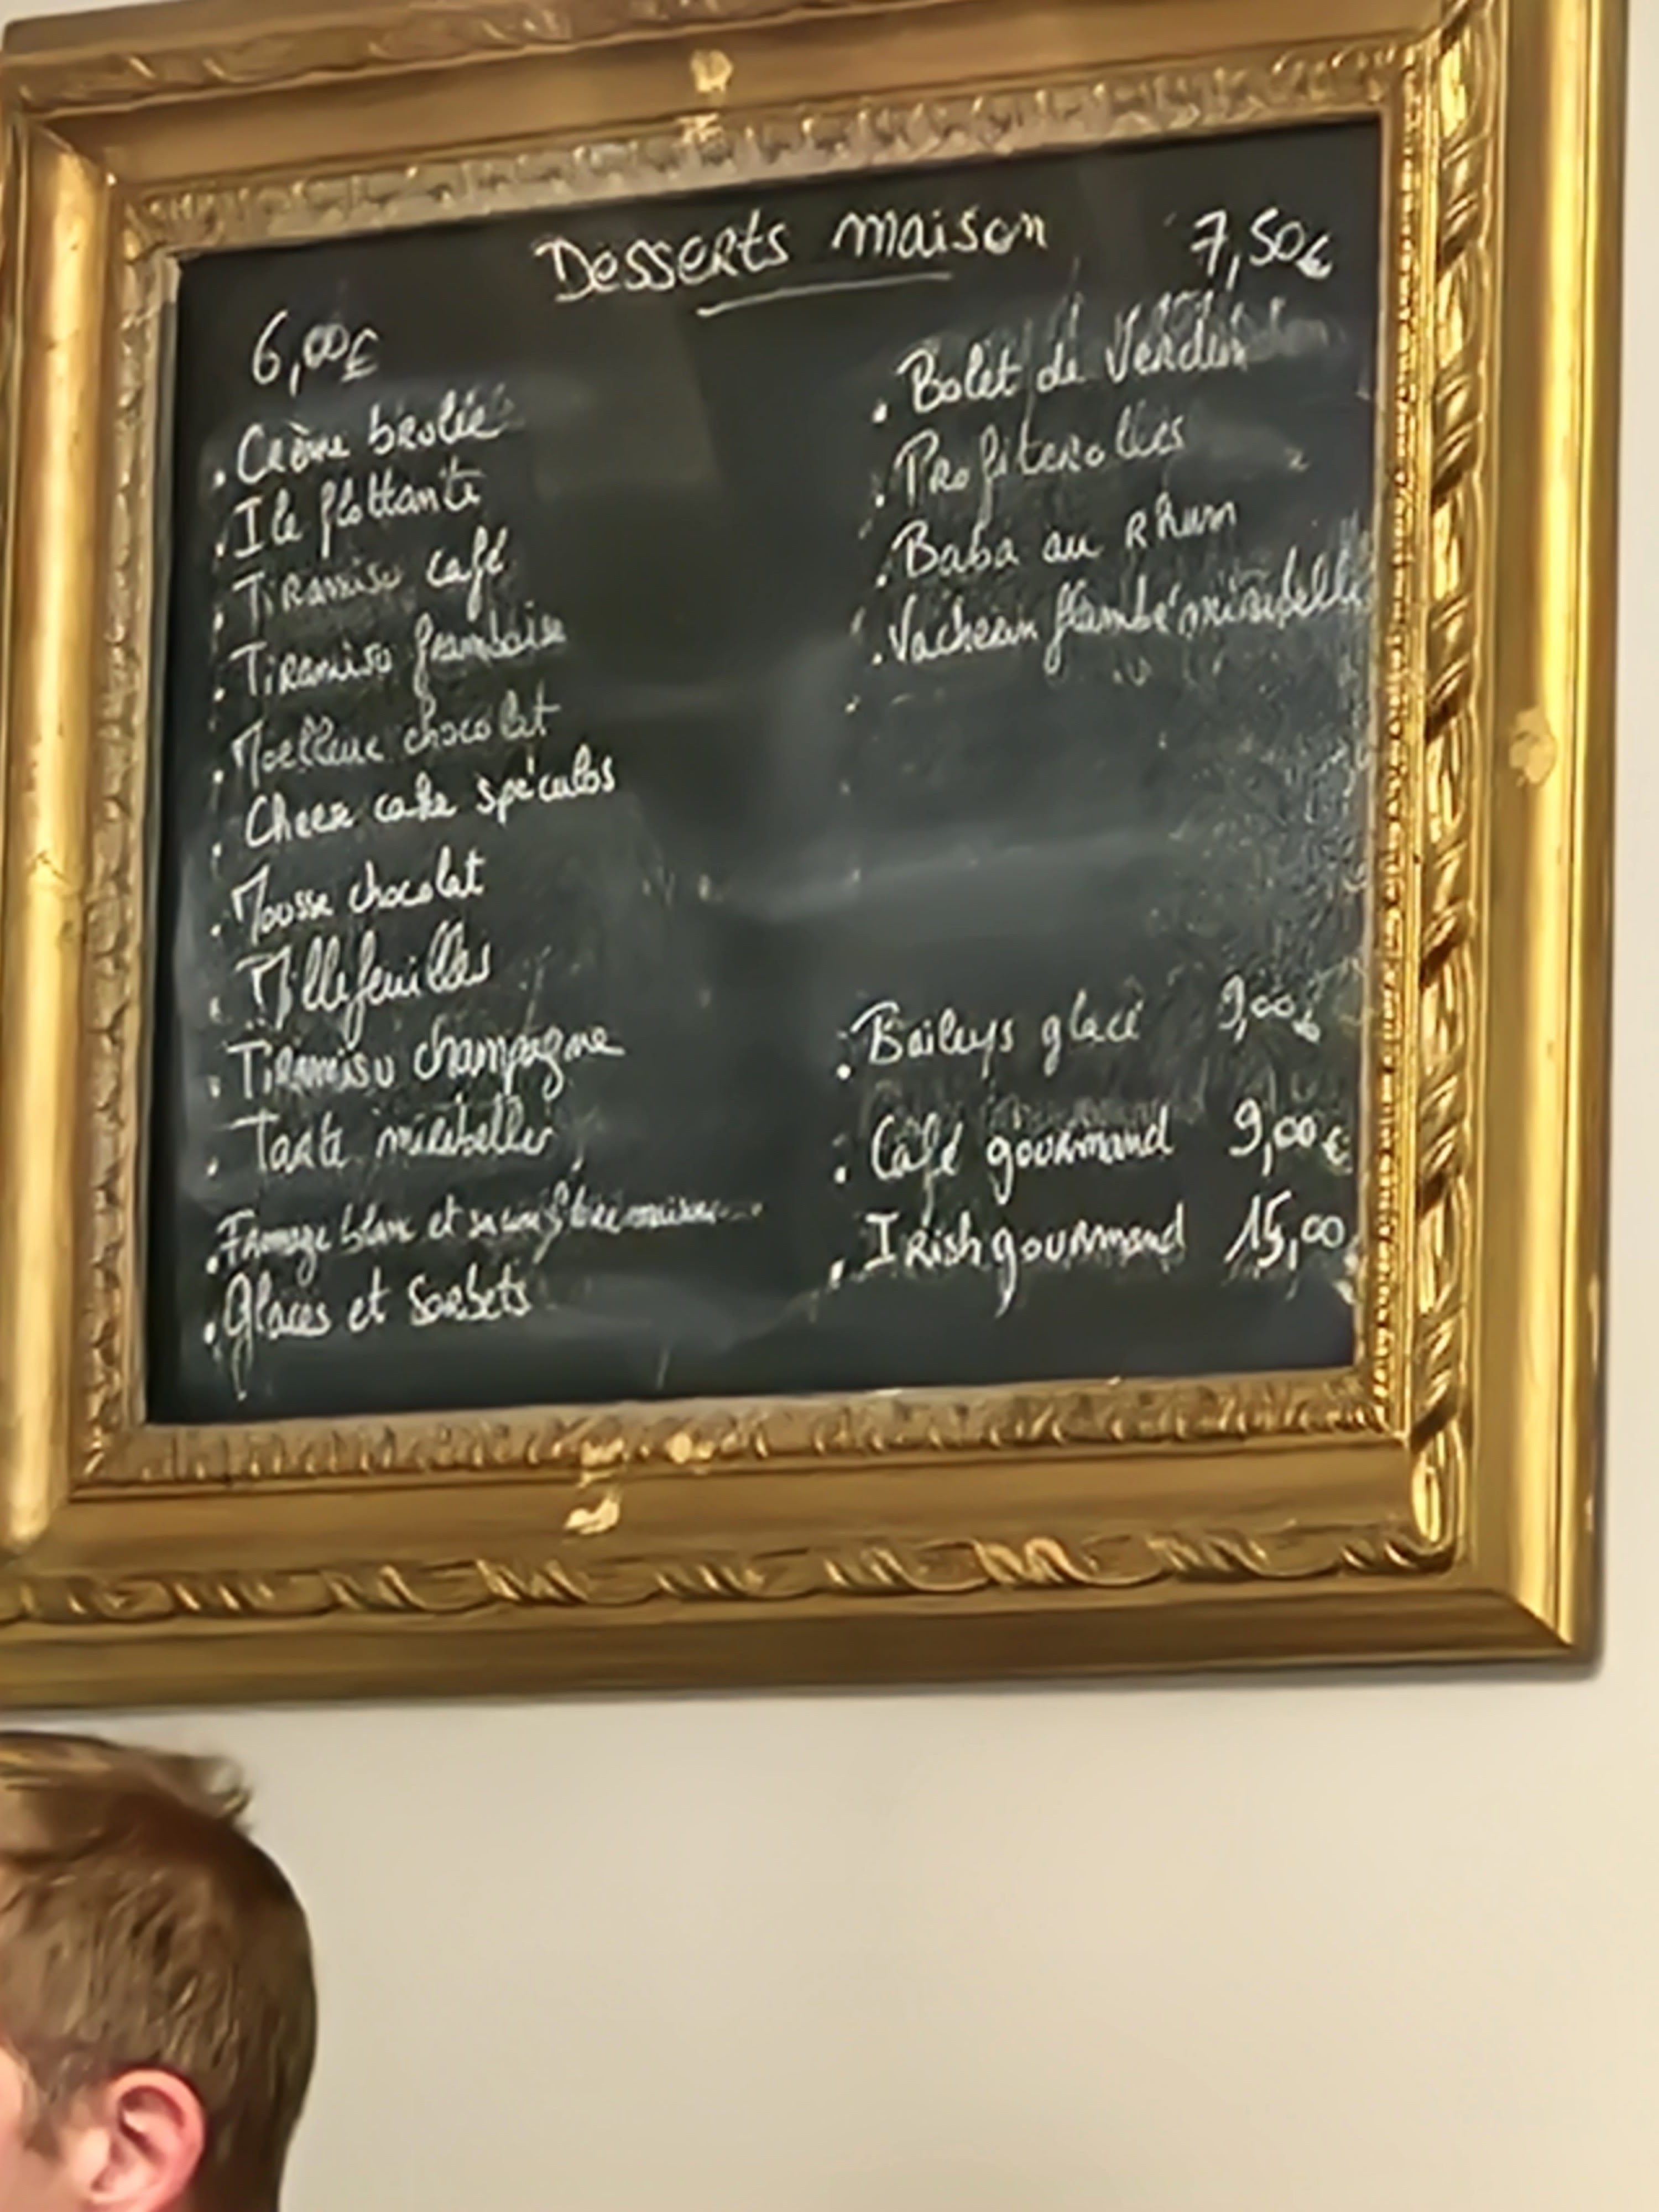 Desserts maison
6,00€
. Crème brulée
. Ile flottante
. Tiramisu café
. Tiramisu framboise
. Moelleux chocolat
. Cheese cake spéculos
. Mousse chocolat
. Millefeuilles
. Tiramisu champagne
. Tarte mirabelles
. Fromage blanc et sa confiture maison
. Glaces et sorbets
7,50€
. Bolet de Verdun
. Profiterolles
. Baba au Rhum
. Vacherin flambé mirabelle
. Baileys glacé 9,00€
. Café gourmand 9,00€
. Irish gourmand 15,00